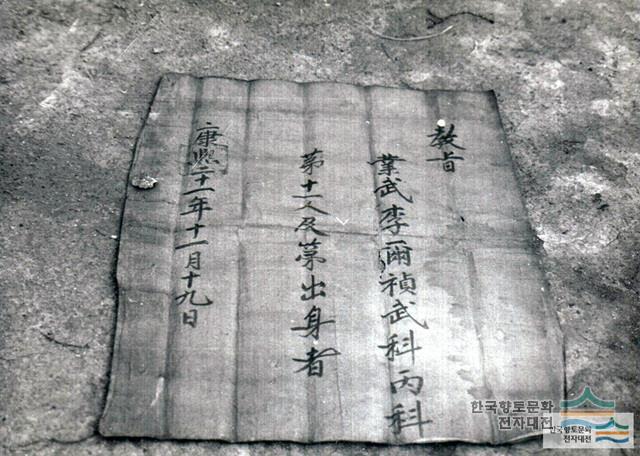 敎旨
業武李爾禎武科丙科
第十一人及第出身者
康熙二十一年十一月十九日
한국향토문화
전자대전
한국향토문화
전자대전